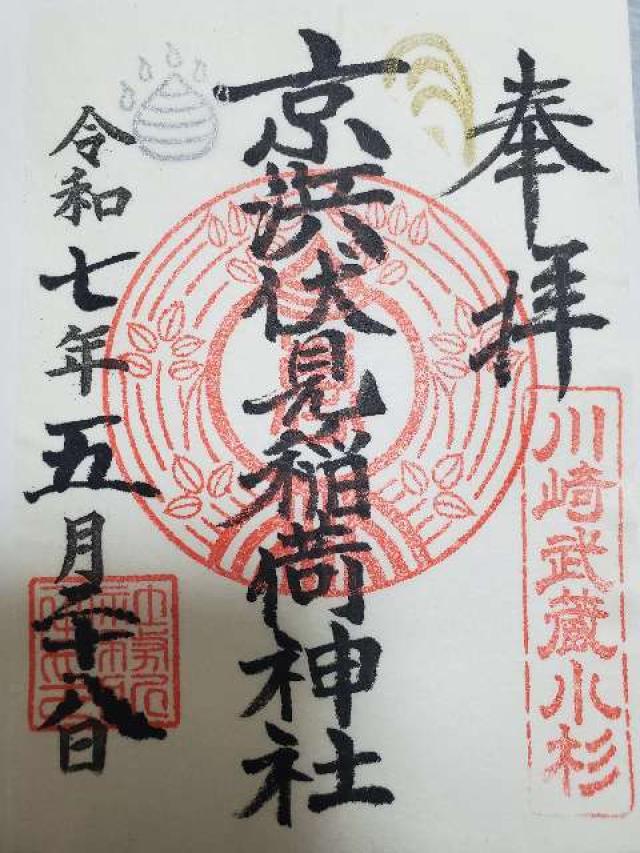 奉拝
川崎武蔵小杉
京浜伏見稲荷神社
令和七年五月二十八日